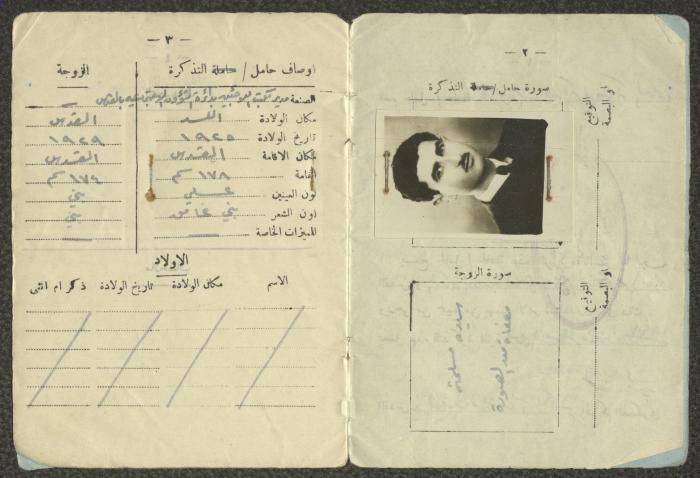 — ٢ —
صورة حامل / حاملة التذكرة
التوقيع
او البصمة
صورة الزوجة
سيدة مسلمة
معفاة من الصورة
التوقيع
او البصمة
— ٣ —
اوصاف حامل / حاملة التذكرة
الزوجة
الصنعة مدير مكتب
مكان الولادة اللد القدس
تاريخ الولادة ١٩٢٥ ١٩٢٩
مكان الاقامة القدس القدس
القامة ١٧٨ سم ١٧٤ سم
لون العينين عسلي بني
لون الشعر بني غامق بني
المميزات الخاصة — —
الاولاد
الاسم مكان الولادة تاريخ الولادة ذكر ام انثى